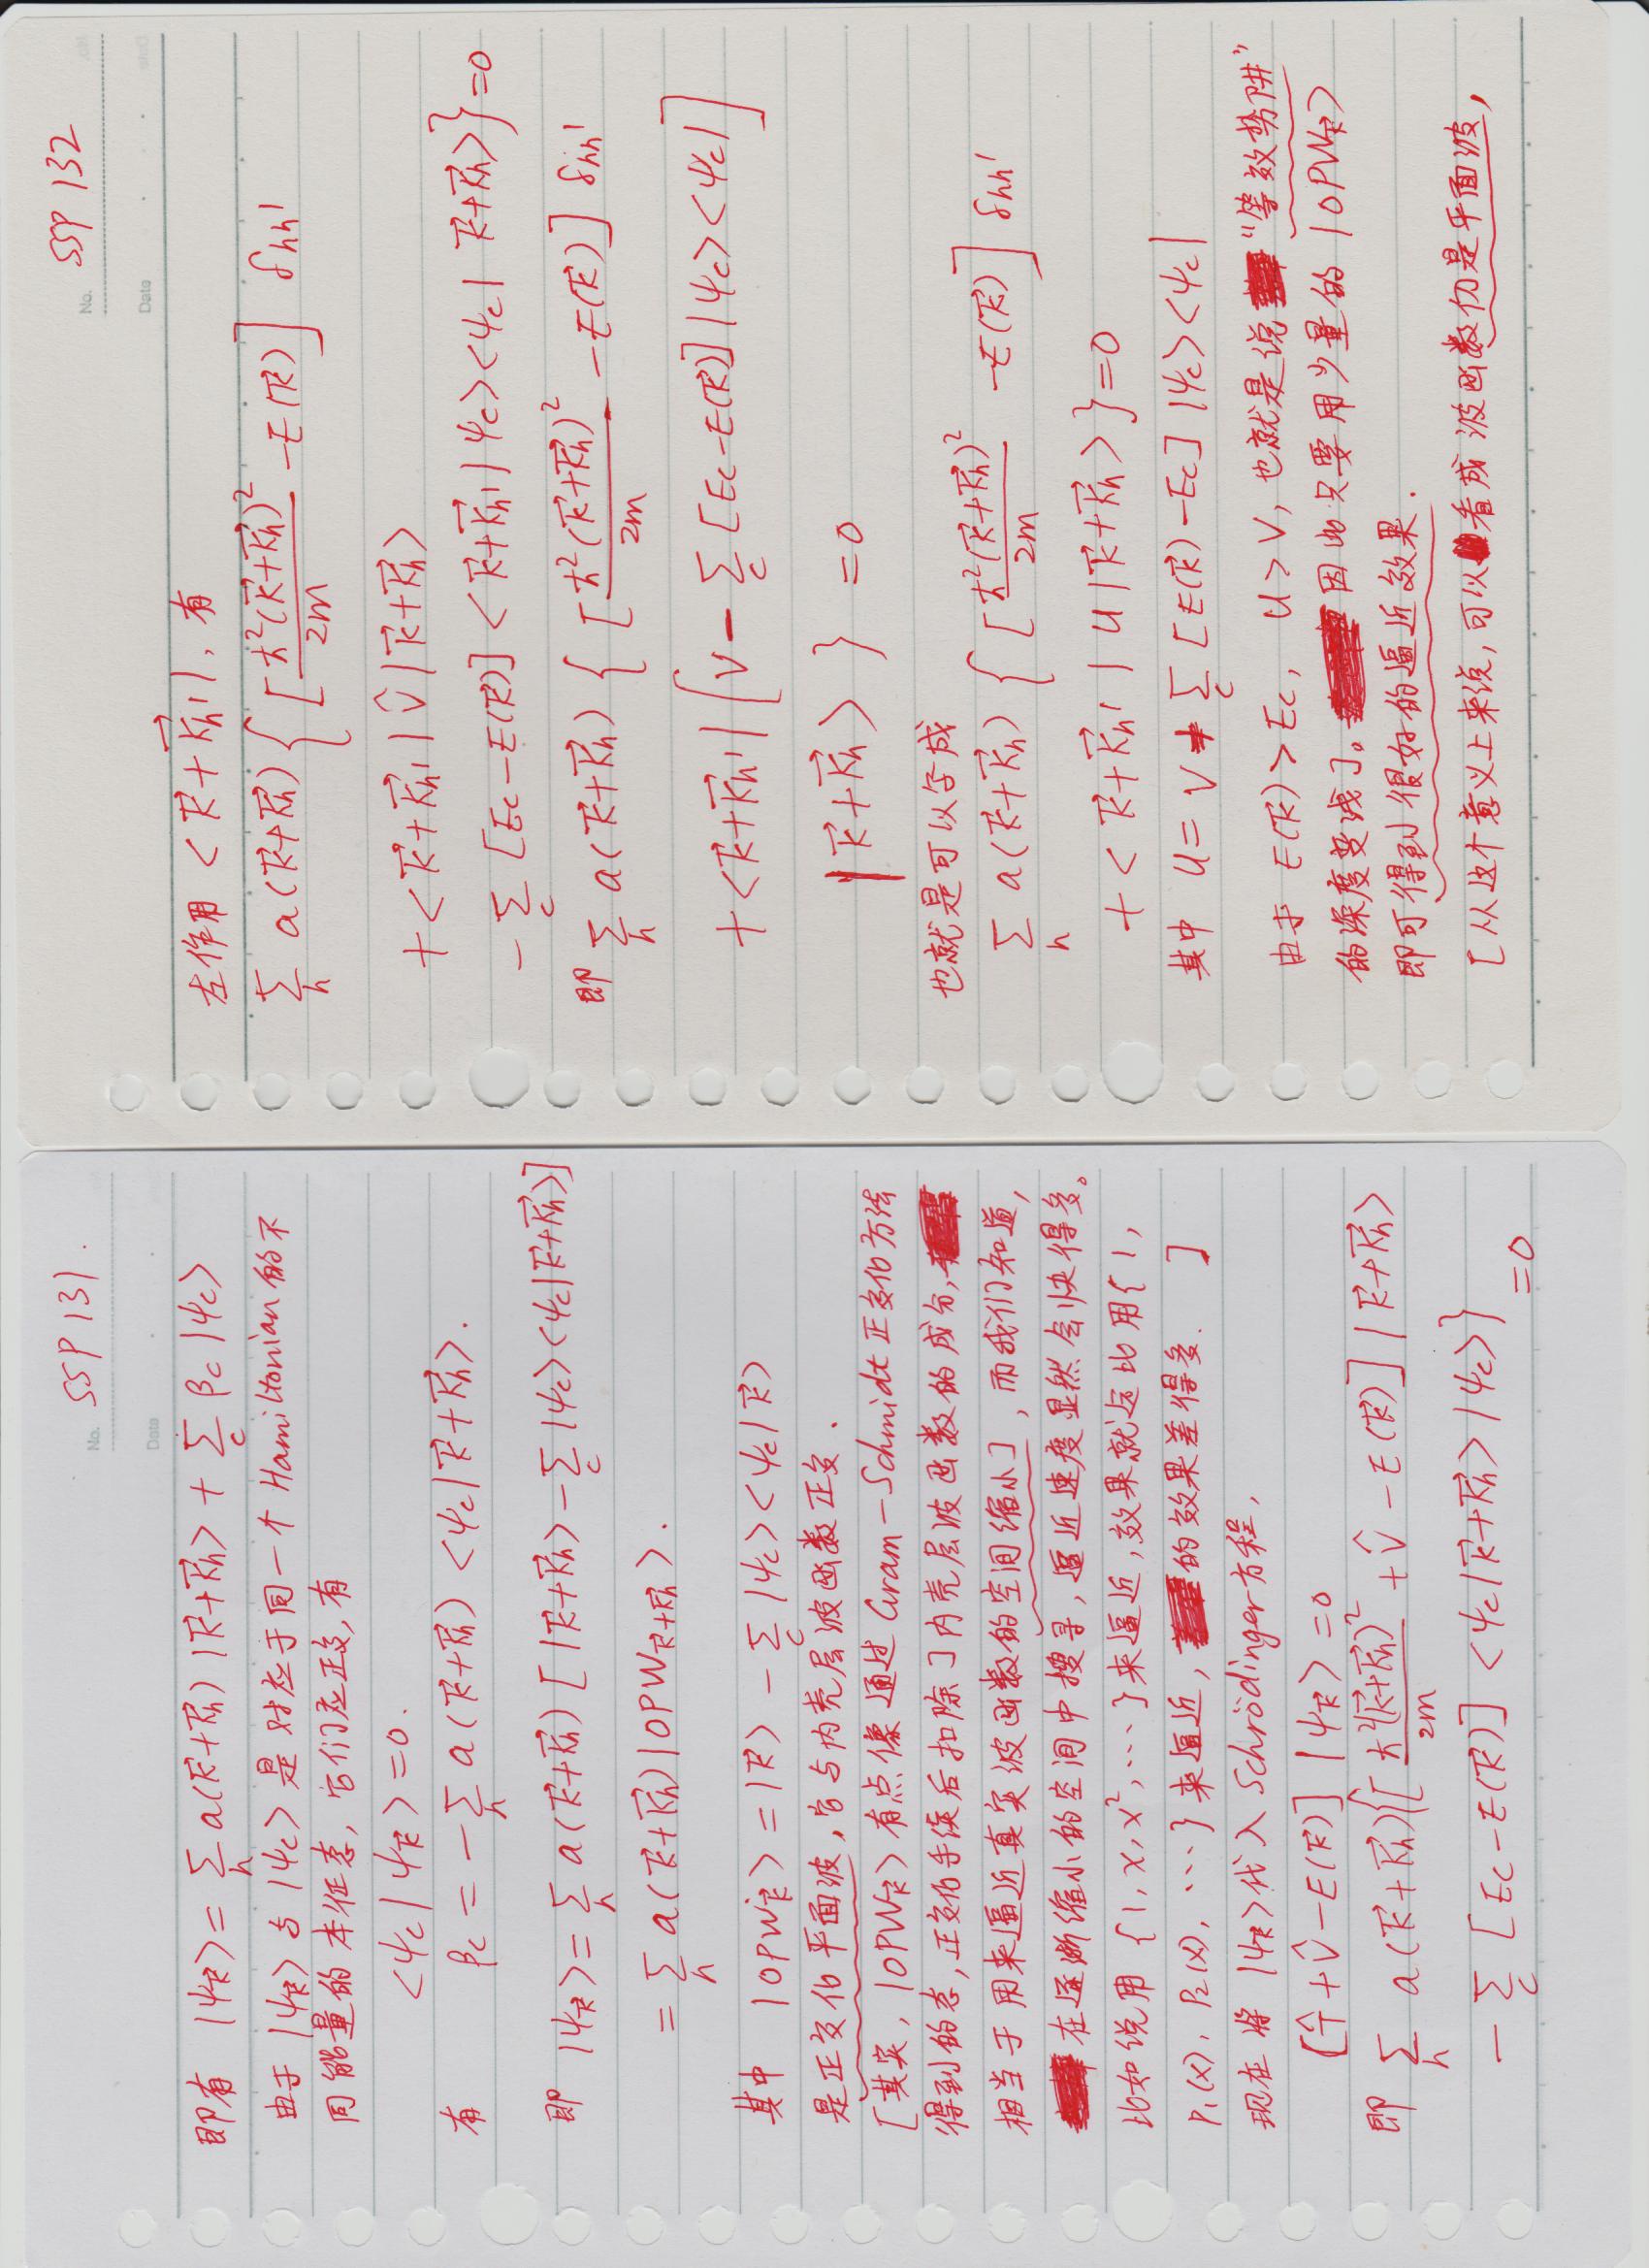 No. SSP 131.
Date
即有 |ψ_k⃗> = Σ_h a(k⃗+K⃗_h) |k⃗+K⃗_h> + Σ_c β_c |ψ_c>
由于 |ψ_k⃗> 与 |ψ_c> 是对应于同一个 Hamiltonian 的不
同能量的本征态, 它们应正交, 有
<ψ_c|ψ_k⃗> = 0.
有 β_c = -Σ_h a(k⃗+K⃗_h) <ψ_c|k⃗+K⃗_h>.
即 |ψ_k⃗> = Σ_h a(k⃗+K⃗_h) [ |k⃗+K⃗_h> - Σ_c |ψ_c><ψ_c|k⃗+K⃗_h>]
= Σ_h a(k⃗+K⃗_h) |OPW_k⃗+K⃗_h>.
其中 |OPW_k⃗> = |k⃗> - Σ_c |ψ_c><ψ_c|k⃗>
是正交化平面波, 它与内壳层波函数正交.
[其实, |OPW_k⃗> 有点像通过 Gram-Schmidt 正交化方法
得到的态, 正交化手续后扣除了内壳层波函数的成分,
相当于用来逼近真实波函数的空间缩小了, 而我们知道,
在逐渐缩小的空间中搜寻, 逼近速度显然会快得多。
比如说用 {1, x, x², ⋯} 来逼近, 效果就远比用 {1,
P₁(x), P₂(x), ⋯} 来逼近, 的效果差得多. ]
现在将 |ψ_k⃗> 代入 Schrödinger 方程,
[T̂ + V̂ - E(k⃗)] |ψ_k⃗> = 0
即 Σ_h a(k⃗+K⃗_h){[ħ²(k⃗+K⃗_h)²/2m + V̂ - E(k⃗)] |k⃗+K⃗_h>
- Σ_c [E_c - E(k⃗)] <ψ_c|k⃗+K⃗_h> |ψ_c>}
= 0
No. SSP 132
Date
左作用 <k⃗+K⃗_h'|, 有
Σ_h a(k⃗+K⃗_h) { [ħ²(k⃗+K⃗_h)²/2m - E(k⃗)] δ_hh'
+ <k⃗+K⃗_h'| V̂ |k⃗+K⃗_h>
- Σ_c [E_c - E(k⃗)] <k⃗+K⃗_h'|ψ_c><ψ_c|k⃗+K⃗_h>} = 0
即 Σ_h a(k⃗+K⃗_h) { [ħ²(k⃗+K⃗_h)²/2m - E(k⃗)] δ_hh'
+ <k⃗+K⃗_h'| [V - Σ_c [E_c - E(k⃗)] |ψ_c><ψ_c|]
|k⃗+K⃗_h> } = 0
也就是可以写成
Σ_h a(k⃗+K⃗_h) { [ħ²(k⃗+K⃗_h)²/2m - E(k⃗)] δ_hh'
+ <k⃗+K⃗_h'| U |k⃗+K⃗_h>} = 0
其中 U = V + Σ_c [E(k⃗) - E_c] |ψ_c><ψ_c|
由于 E(k⃗) > E_c, U > V, 也就是说 “等效势阱”
的深度变浅了。因此只要用少量的 |OPW_k⃗>
即可得到很好的逼近效果.
[从这个意义上来说, 可以看成波函数仍是平面波,